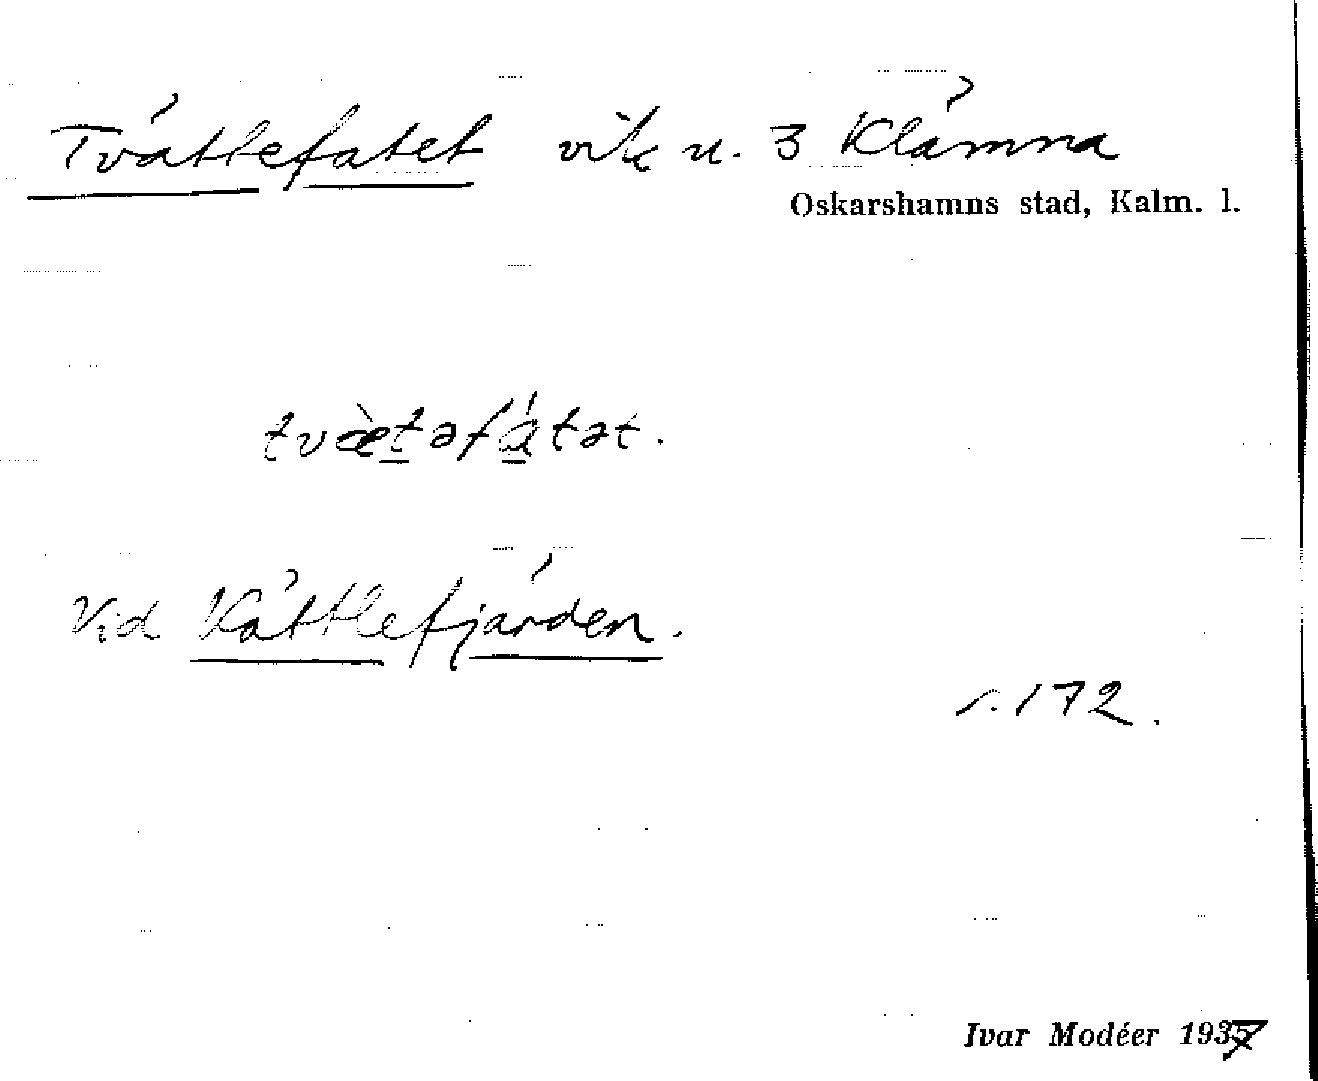 Tvättlefatet vik u. 3 Klämna
Oskarshamns stad, Kalm. l.
tvæ̀təfátət.
Vid Kättlefjärden.
s. 172.
Ivar Modéer 1937